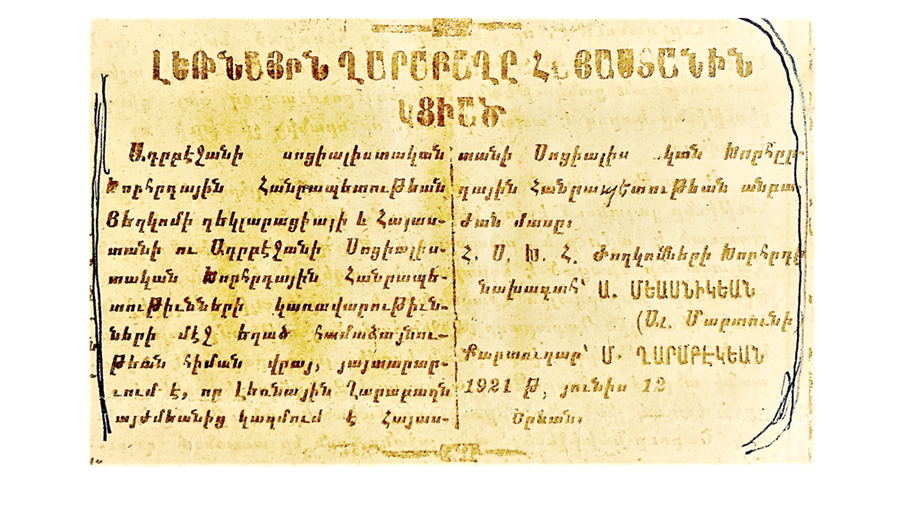 ԼԵՌՆԱՅԻՆ ՂԱՐԱԲԱՂԸ ՀԱՅԱՍՏԱՆԻՆ
ԿՑԻԱԾ
Ադրբէջանի սոցիալիստական
Խորհրդային Հանրապետութեան
Յեղկոմի դեկլարացիայի և Հայաս-
տանի ու Ադրբէջանի Սոցիալիս-
տական Խորհրդային Հանրապե-
տութիւնների կառավարութիւն-
ների մէջ եղած համաձայնու-
թեան հիման վրայ, յայտարար-
ւում է, որ Լեռնային Ղարաբաղն
այժմեանից կազմում է Հայաս-
տանի Սոցիալիս կան Խորհրը-
դային Հանրապետութեան անբա-
ժան մասը։
Հ. Ս. Խ. Հ. Ժողկոմների Խորհրդի
նախագահ՝ Ա. ՄԵԱՍՆԻԿԵԱՆ
(Ալ. Մարտունի)
Քարտուղար՝ Մ. ՂԱՐԱԲԷԿԵԱՆ
1921 թ, յունիս 12
Երևան։